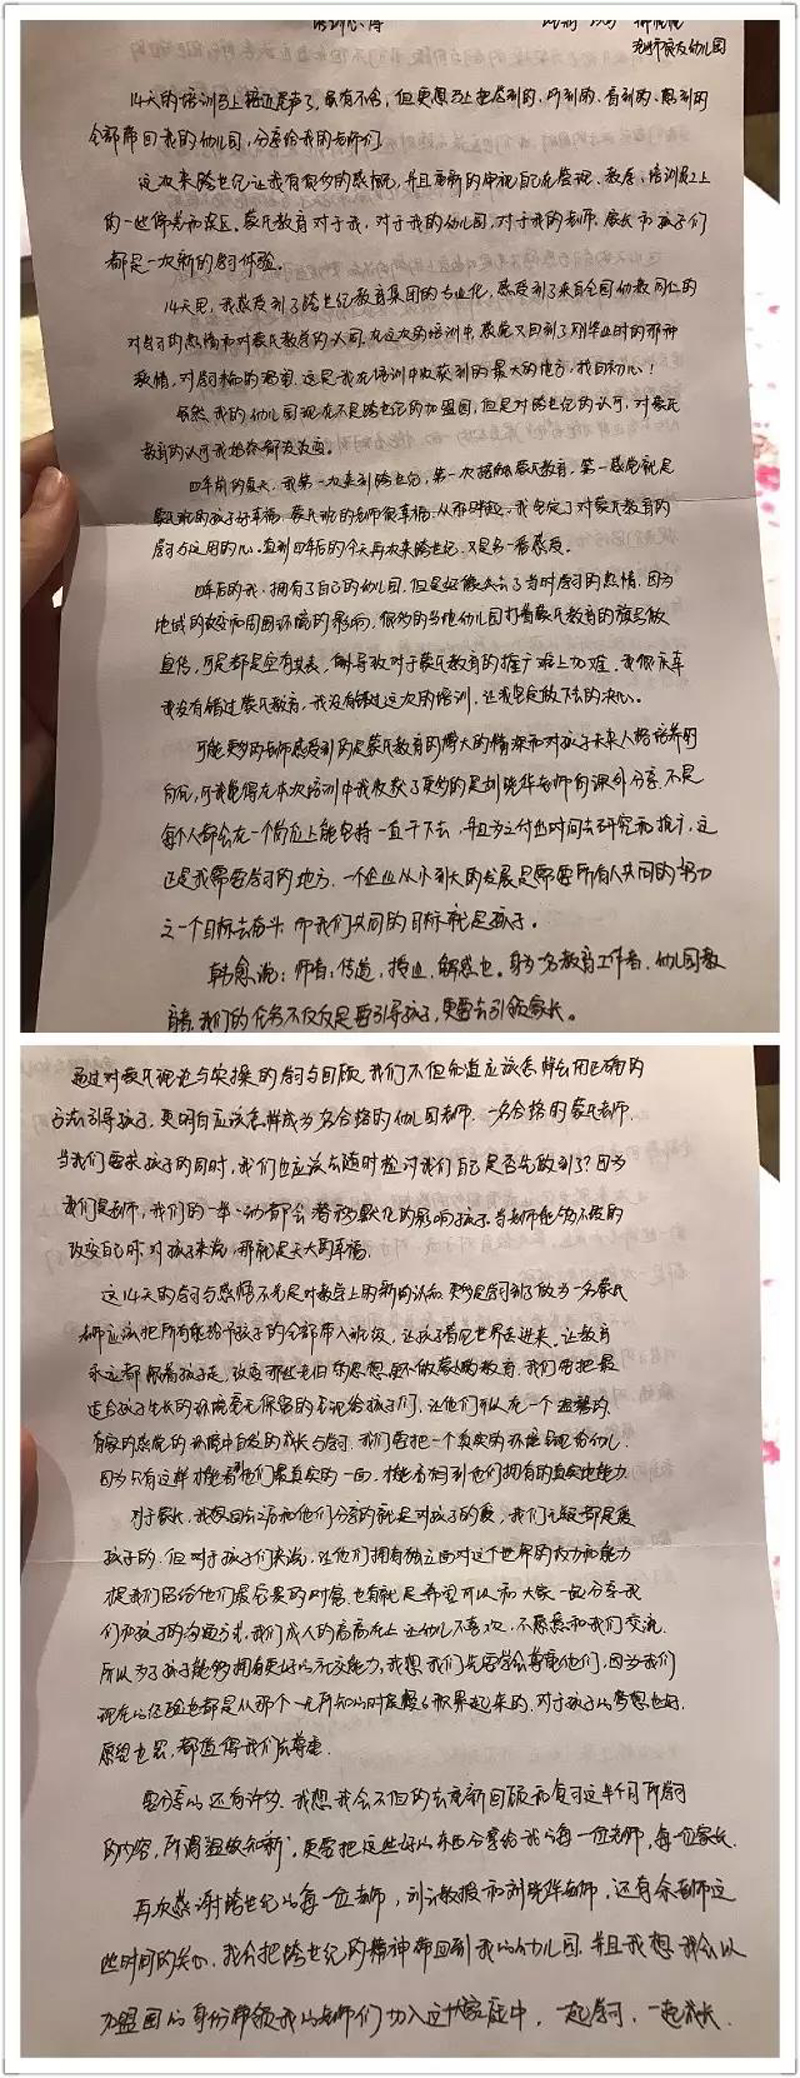 培训心得
幼儿园
14天的培训马上接近尾声了，虽有不舍，但更想马上把感到的、听到的、看到的、想到的
全部带回我的幼儿园，分享给我的老师们
这次来跨世纪让我有很多的感慨，并且重新的审视自己在管理、教学、培训员工上
的一些偏差和误区。蒙氏教育对于我，对于我的幼儿园，对于我的老师、家长和孩子们
都是一次新的学习体验。
14天里，我感受到了跨世纪教育集团的专业化，感受到了来自全国幼教同仁的
对学习的热情和对蒙氏教学的认同，在这次的培训中，感觉又回到了刚毕业时的那种
激情，对学习的渴望，这是我在培训中收获到的最大的地方，找回初心！
虽然我的幼儿园现在不是跨世纪的加盟园，但是对跨世纪的认可，对蒙氏
教育的认可我始终都没改变。
四年前的夏天，我第一次来到跨世纪，第一次接触蒙氏教育，第一感觉就是
蒙氏班的孩子好幸福，蒙氏班的老师很幸福，从那时起，我坚定了对蒙氏教育的
学习与运用的心。直到四年后的今天再次来跨世纪，又是另一番感受。
四年后的我，拥有了自己的幼儿园，但是好像失去了当时学习的热情，因为
地域的改变和周围环境的影响，很多的当地幼儿园打着蒙氏教育的旗号做
宣传，可是都是空有其表，导致对于蒙氏教育的推广难上加难，我很庆幸
我没有错过蒙氏教育，我没有错过这次的培训，让我坚定做下去的决心。
可能更多的老师感受到的是蒙氏教育的博大的情深和对孩子未来人格培养的
方向，可我觉得在本次培训中我收获了更多的是刘晓华老师的课外分享，不是
每个人都会在一个岗位上能坚持一直干下去，并且为之付出时间去研究和推广，这
还是我需要学习的地方，一个企业从小到大的发展是需要所有人共同的努力
之一个目标去奋斗，而我们共同的目标就是孩子。
韩愈说：师者，传道，授业，解惑也。身为一名教育工作者，幼儿园教
育者，我们的任务不仅仅是要引导孩子，更要去引领家长。
通过对蒙氏理论与实操的学习与回顾，我们不但知道应该怎样去用正确的
方法引导孩子，更明白应该怎样成为一名合格的幼儿园老师，一名合格的蒙氏老师，
当我们要求孩子的同时，我们也应该去随时检讨我们自己是否先做到了？因为
我们是老师，我们的一举一动都会潜移默化的影响孩子，当老师能够不断的
改变自己时，对孩子来说，那就是天大的幸福。
这14天的学习与感悟不光是对教学上的新的认知，更多是学习到了做为一名蒙氏
老师应该把所有能给予孩子的全部带入班级，让孩子看见世界走进来，让教育
永远都跟着孩子走，改变那些老旧的思想，不做蒙人的教育，我们要把最
适合孩子生长的环境毫无保留的呈现给孩子们，让他们可以在一个温馨的，
有家的感觉的环境中自发的成长与学习，我们要把一个真实的环境呈现给幼儿，
因为只有这样才能看到他们最真实的一面，才能看到他们拥有的真实地能力
对于家长，我想回去之后和他们分享的就是对孩子的爱，我们无疑都是爱
孩子的，但对于孩子们来说，让他们拥有独立面对这个世界的权力和能力
才是我们留给他们最宝贵的财富，也有就是希望可以和大家一起分享我
们和孩子的沟通方式，我们成人的高高在上让幼儿不喜欢，不愿意和我们交流，
所以为了孩子能够拥有更好的社交能力，我想我们先要学会尊重他们，因为我们
现在的经验也都是从那个一无所知的时候慢慢积累起来的，对于孩子的梦想也好，
愿望也罢，都值得我们去尊重。
要分享的还有许多，我想我会不但的去重新回顾和复习这半个月所学习
的内容，所谓“温故知新”，更要把这些好的东西分享给我的每一位老师，每一位家长，
再次感谢跨世纪的每一位老师，刘教授和刘晓华老师，还有余老师这
些时间的关心，我会把跨世纪的精神带回到我的幼儿园，并且我想我会以
加盟园的身份带领我的老师们加入这个大家庭中，一起学习，一起成长。